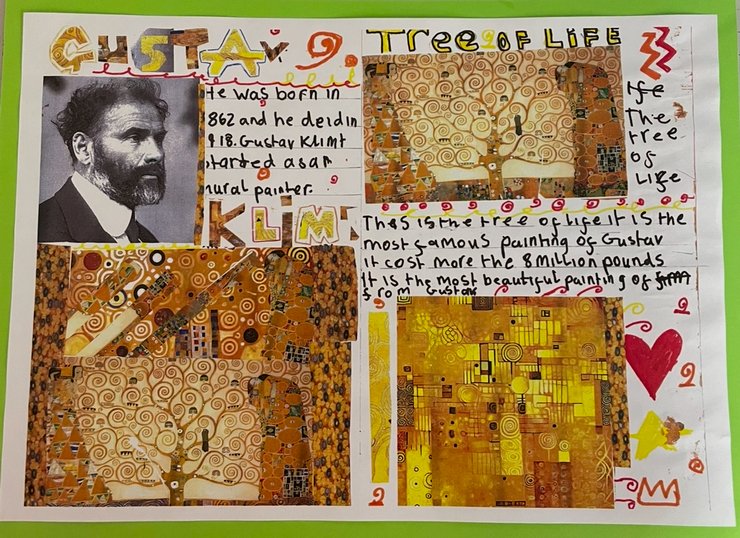 GUSTAV
He was born in
1862 and he deid in
1918. Gustav Klimt
started as an
mural painter.
KLIMT
TreeOF LiFE
The
tree
of
Life
Thes is the tree of life it is the
most famous painting of Gustav
it cost more the 8 million pounds
It is the most beautiful painting of
from Gustav